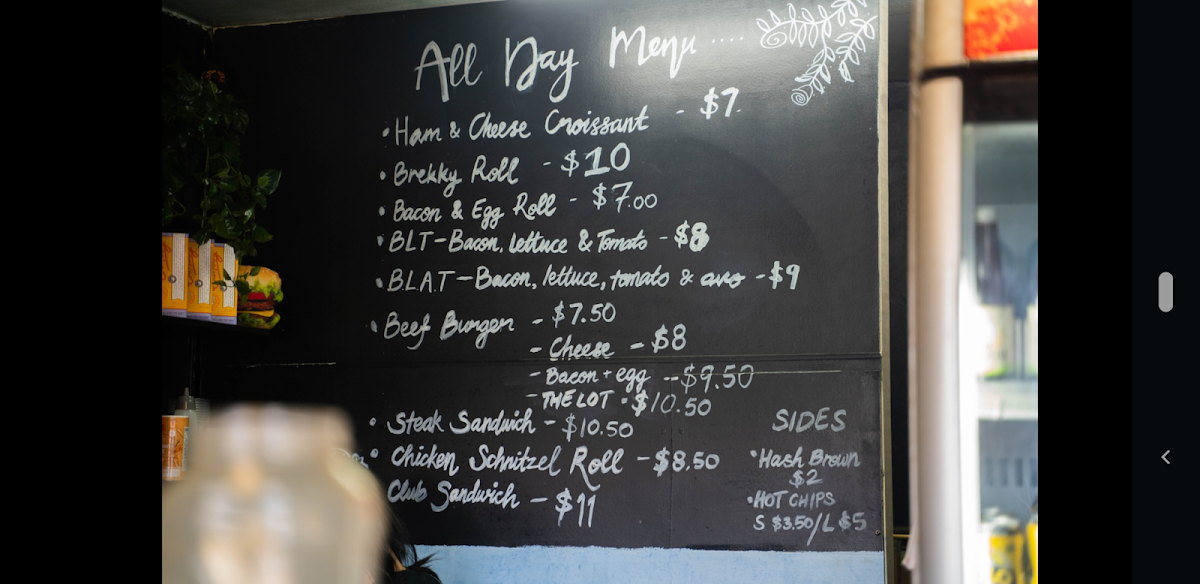 All Day Menu ....
• Ham & Cheese Croissant - $7.
• Brekky Roll - $10
• Bacon & Egg Roll - $7.00
• BLT - Bacon, lettuce & Tomato - $8
• B.L.A.T - Bacon, lettuce, tomato & avo - $9
• Beef Burger - $7.50
- Cheese - $8
- Bacon + egg -- $9.50
- THE LOT - $10.50
• Steak Sandwich - $10.50
• Chicken Schnitzel Roll - $8.50
Club Sandwich - $11
SIDES
• Hash Brown
$2
• HOT CHIPS
S $3.50/L $5